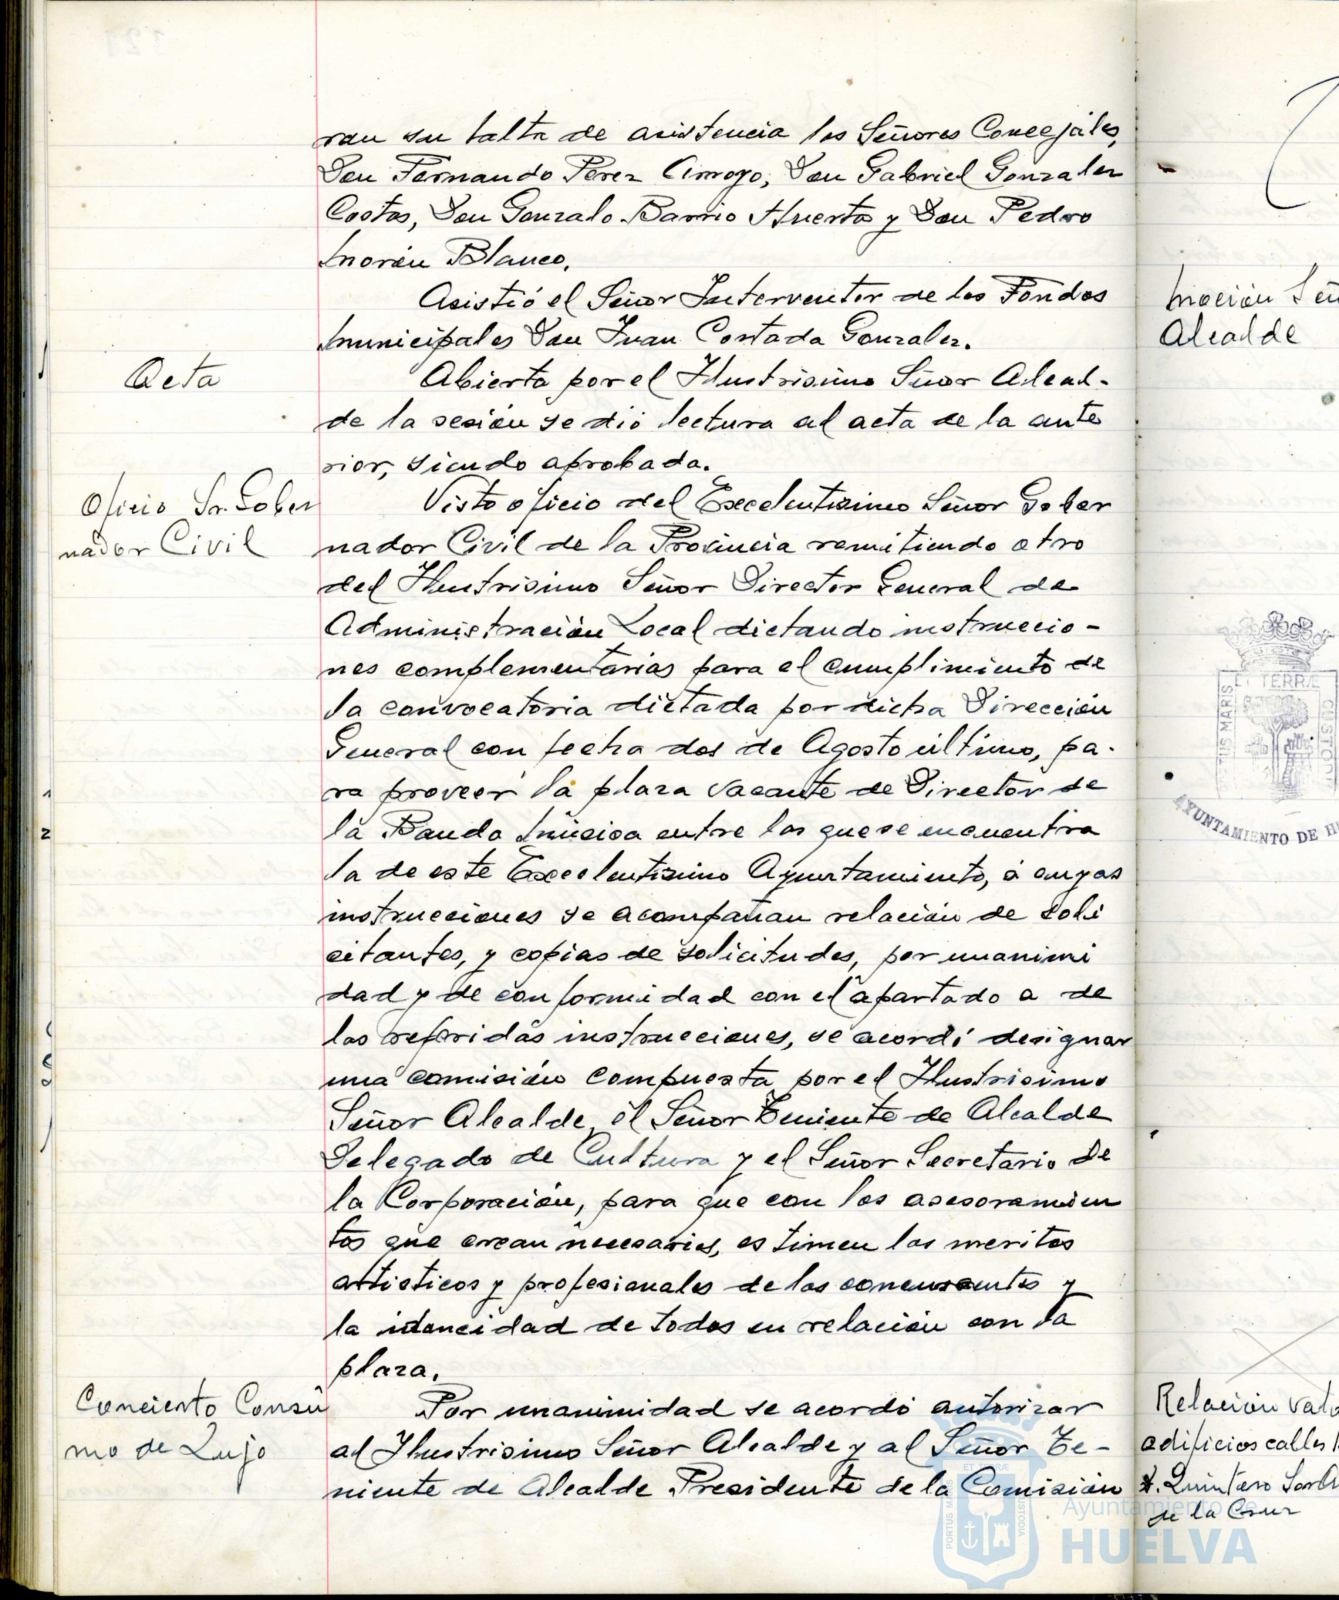 ran su falta de asistencia los Señores Concejales,
Don Fernando Perez Arroyo, Don Gabriel Gonzalez
Costas, Don Gonzalo Barrio Huerta y Don Pedro
Morón Blanco.
Asistió el Señor Interventor de los Fondos
Municipales Don Juan Contada Gonzalez.
Acta
Abierta por el Ilustrisimo Señor Alcal-
de la sesión se dió lectura al acta de la ante
rior, siendo aprobada.
Oficio Sr. Gober
nador Civil
Visto oficio del Excelentisimo Señor Gober
nador Civil de la Provincia remitiendo otro
del Ilustrisimo Señor Director General de
Administración Local dictando instruccio-
nes complementarias para el cumplimiento de
la convocatoria dictada por dicha Dirección
General con fecha dos de Agosto último, pa-
ra proveer la plaza vacante de Director de
la Banda Música entre las que se encuentra
la de este Excelentisimo Ayuntamiento, á cuyas
instrucciones se acompañan relación de soli
citantes, y copias de solicitudes, por unanimi
dad y de conformidad con el apartado a de
las referidas instrucciones, se acordó designar
una comisión compuesta por el Ilustrisimo
Señor Alcalde, el Señor Teniente de Alcalde
Delegado de Cultura y el Señor Secretario de
la Corporación, para que con los asesoramien
tos que crean necesarios, estimen los meritos
artisticos y profesionales de los concursantes y
la idoneidad de todos en relación con la
plaza.
Concierto Consu
mo de Lujo
Por unanimidad se acordó autorizar
al Ilustrisimo Señor Alcalde y al Señor Te-
niente de Alcalde Presidente de la Comisión
Moción Señ
Alcalde
ET TERRÆ
PORTUS MARIS
CUSTODI
AYUNTAMIENTO DE H
Relación valo
edificios calles
Quintero
de la Cruz
Ayuntamiento de
HUELVA